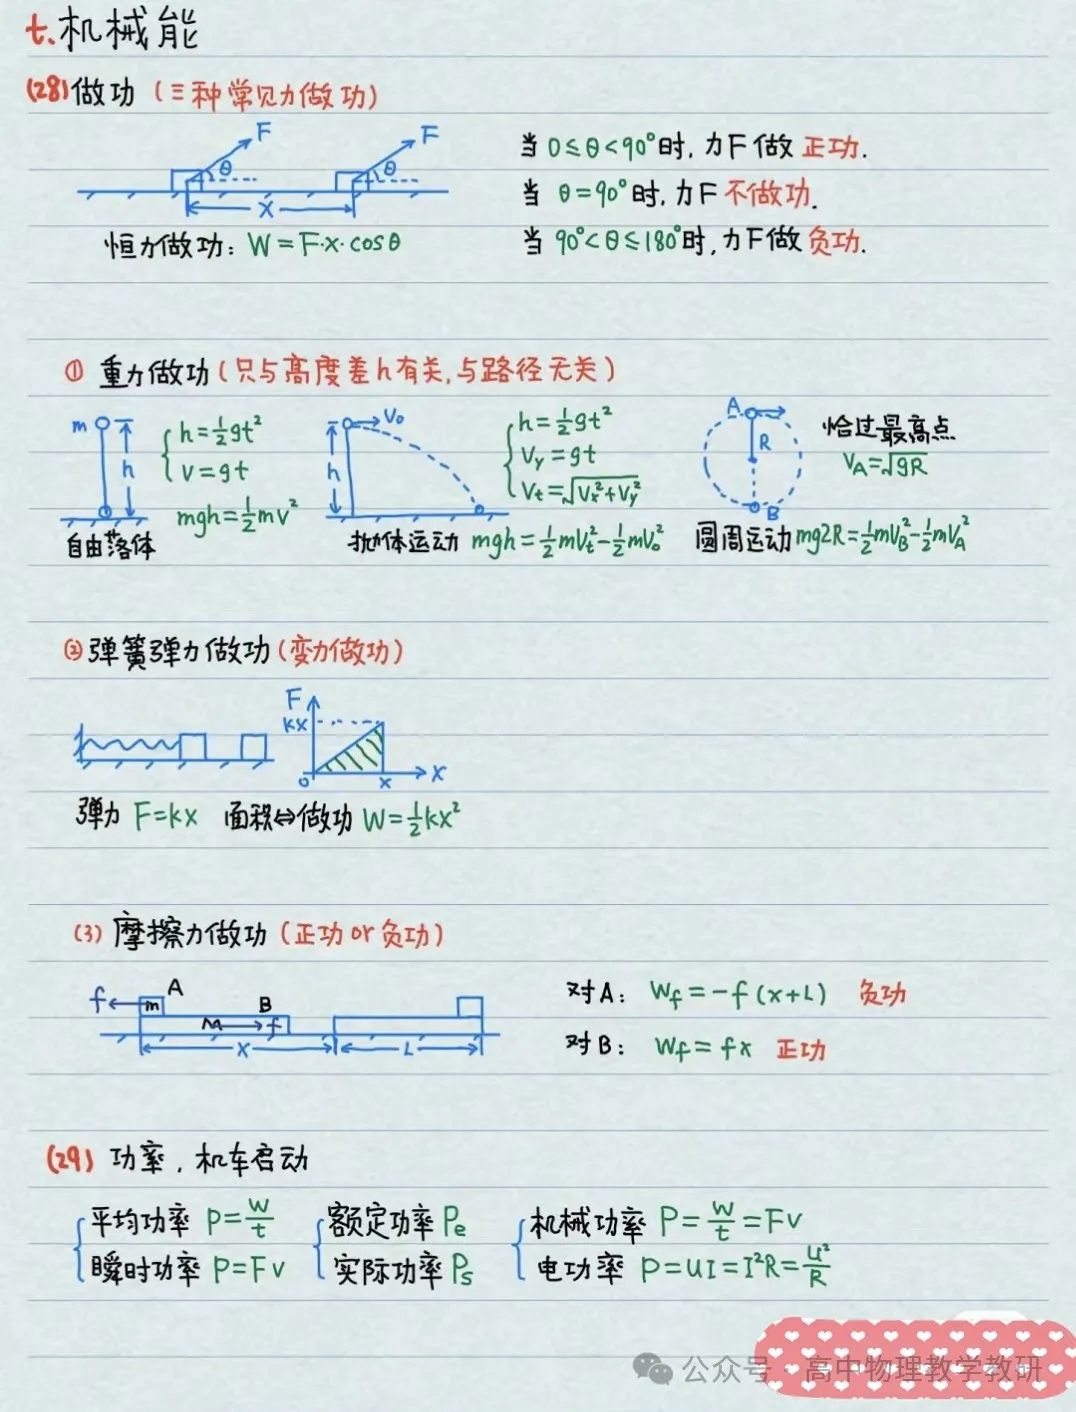 七.机械能
(28)做功（三种常见力做功）
F F
θ θ
x
恒力做功: W=F·x·cosθ
当 0≤θ<90°时, 力F做 正功.
当 θ=90°时, 力F 不做功.
当 90°<θ≤180°时, 力F做 负功.
① 重力做功(只与高度差h有关, 与路径无关)
m h
h=½gt²
v=gt
mgh=½mv²
自由落体
V₀ h
h=½gt²
Vy=gt
Vt=√(Vx²+Vy²)
抛体运动 mgh=½mVt²-½mV₀²
A R B
恰过最高点
VA=√gR
圆周运动 mg2R=½mVB²-½mVA²
② 弹簧弹力做功(变力做功)
F
kx
o x x
弹力 F=kx 面积⇔做功 W=½kx²
(3) 摩擦力做功 (正功 or 负功)
f m A B
M f
x L
对A: Wf=-f(x+L) 负功
对B: Wf=fx 正功
(29) 功率, 机车启动
平均功率 P=W/t
瞬时功率 P=Fv
额定功率 Pe
实际功率 Ps
机械功率 P=W/t=Fv
电功率 P=UI=I²R=U²/R
公众号·高中物理教学教研